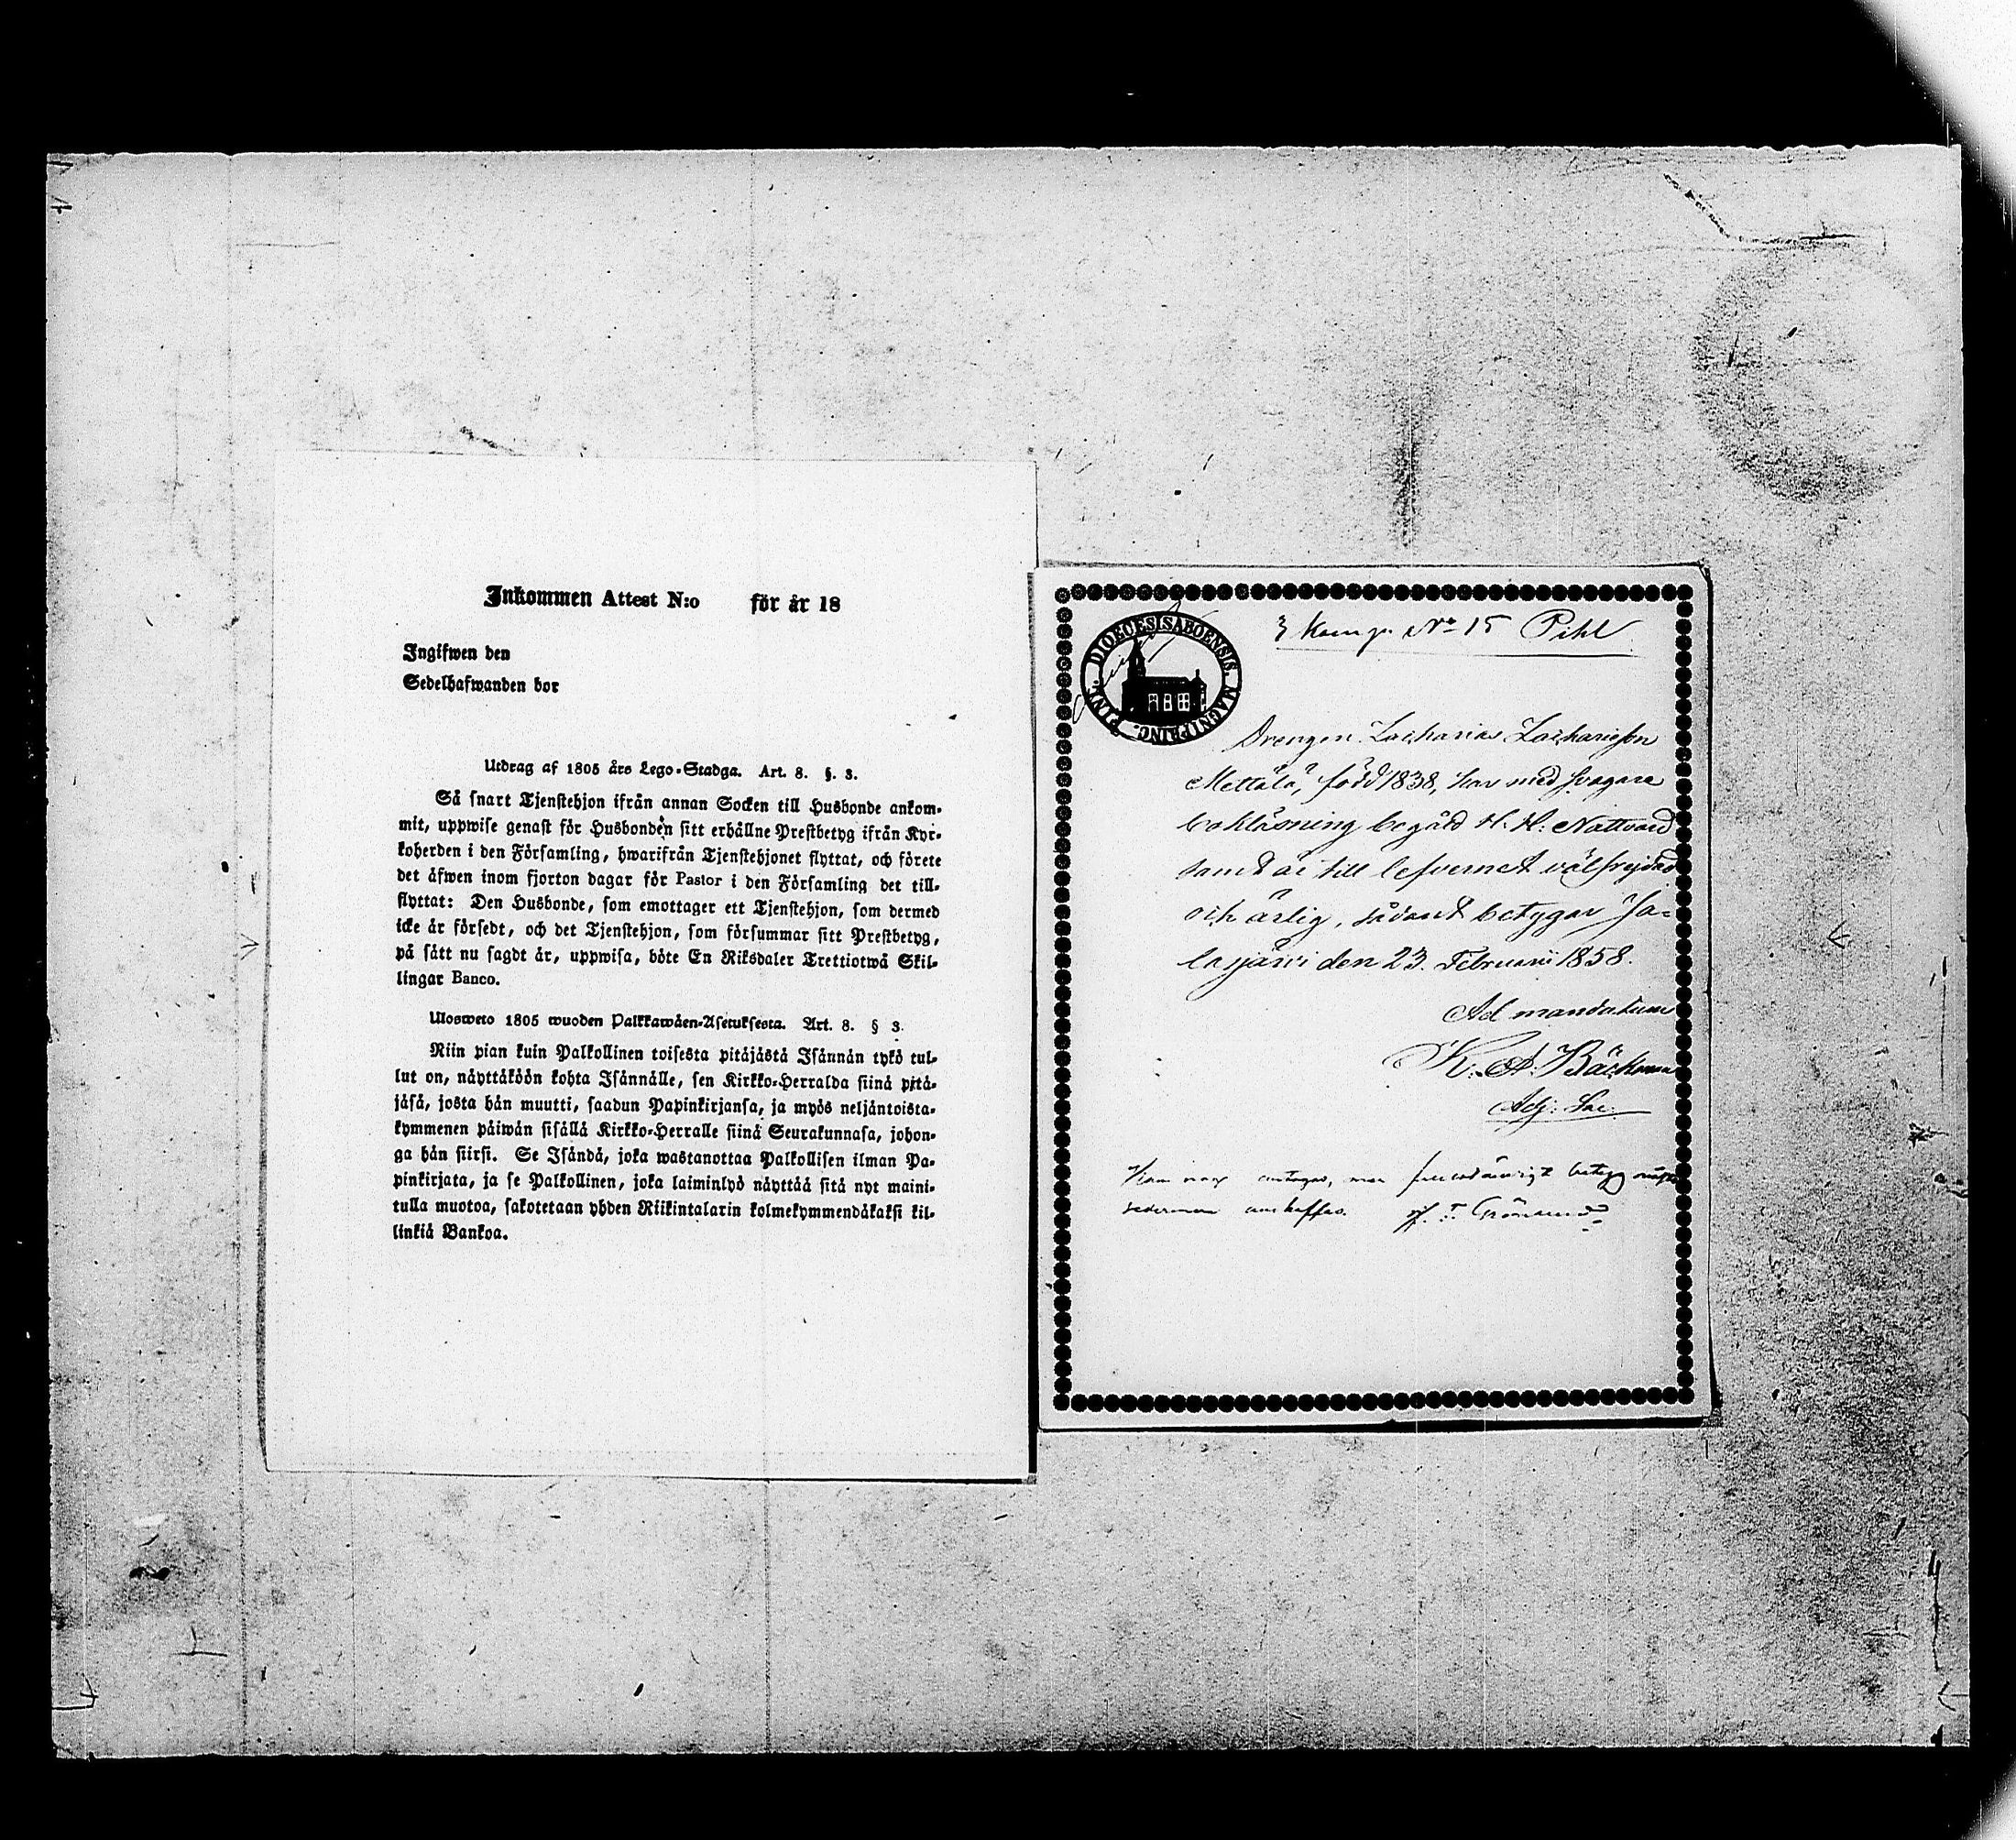 Inkommen Attest N:o för år 18
Ingifwen den
Sedelhafwanden bor
Utdrag af 1805 års Lego-Stadga. Art. 8. §. 3.
Så snart Tjenstehjon ifrån annan Socken till Husbonde ankom-
mit, uppwise genast för Husbonden sitt erhållne Prestbetyg ifrån Kyr-
koherden i den Församling, hwarifrån Tjenstehjonet flyttat, och förete
det äfwen inom fjorton dagar för Pastor i den Församling det till-
flyttat: Den Husbonde, som emottager ett Tjenstehjon, som dermed
icke är försedt, och det Tjenstehjon, som försummar sitt Prestbetyg,
på sätt nu sagdt är, uppwisa, böte En Riksdaler Trettiotwå Skil-
lingar Banco.
Ulosweto 1805 wuoden Palkkawäen-Asetuksesta. Art. 8. § 3.
Niin pian kuin Palkollinen toisesta pitäjästä Isännän tykö tul-
lut on, näyttäköön kohta Isännälle, sen Kirkko-Herralda siinä pitä-
jäsä, josta hän muutti, saadun Papinkirjansa, ja myös neljäntoista-
kymmenen päiwän sisällä Kirkko-Herralle siinä Seurakunnasa, johon-
ga hän siirsi. Se Isändä, joka wastanottaa Palkollisen ilman Pa-
pinkirjata, ja se Palkollinen, joka laiminlyö näyttää sitä nyt maini-
tulla muotoa, sakotetaan yhden Riikintalarin kolmekymmendäkaksi kil-
linkiä Bankoa.
DIOECESIS ABOENSIS. MAGNI PRINC. FINL.
3 Komp. No 15 Pihl
Drengen Zacharias Zachariesson
Mettälä, född 1838, har med svagare
bokläsning begådt H. H. Nattvard
samt är till lefvernet välfrejdad
och ärlig, sådant betygar Ja-
lasjärvi den 23. Februarii 1858.
Ad mandatum
K. A. Bäckman
Adj. Sac.
Han må antagas, men betyg
sedermera anskaffas.